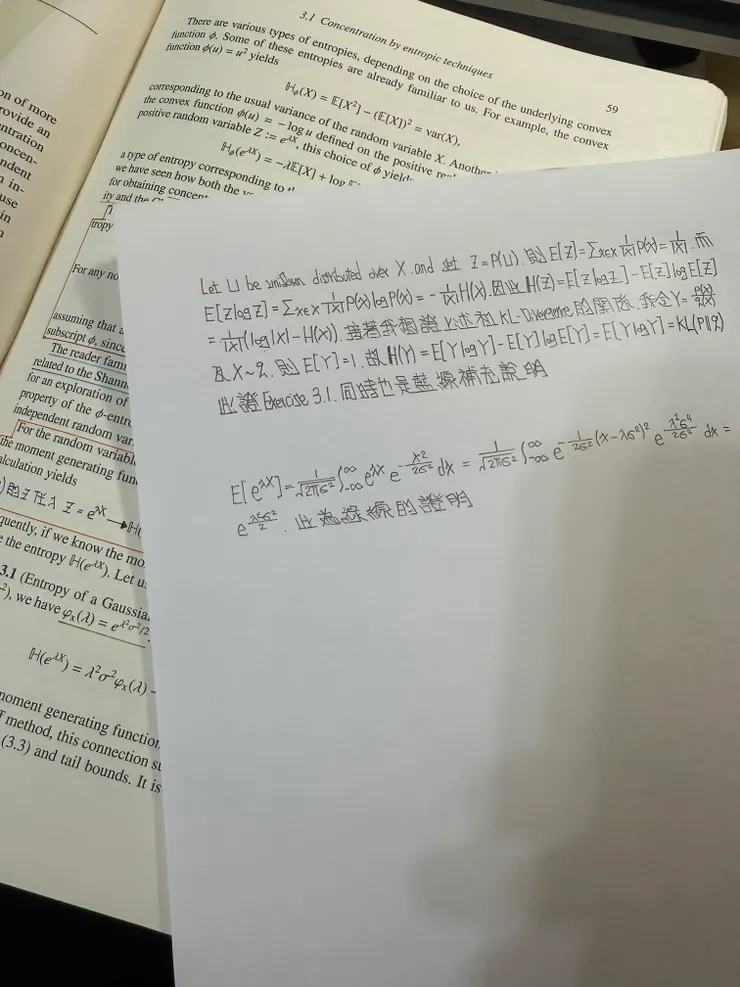 3.1 Concentration by entropic techniques
59
There are various types of entropies, depending on the choice of the underlying convex
function ϕ. Some of these entropies are already familiar to us. For example, the convex
function ϕ(u) = u² yields
ℍϕ(X) = 𝔼[X²] − (𝔼[X])² = var(X),
corresponding to the usual variance of the random variable X. Another
the convex function ϕ(u) = − log u defined on the positive
positive random variable Z := e^{λX}, this choice of ϕ
ℍϕ(e^{λX}) = −λ𝔼[X] + log
a type of entropy corresponding to
we have seen how both the
for obtaining
ity and the
tropy
For any
assuming that
subscript ϕ,
The reader
related to the
for an exploration of
property of the
independent random
For the random
the moment generating
calculation yields
的Z代入 Z = e^{λX}
if we know the
the entropy ℍ(e^{λX}). Let
3.1 (Entropy of a
we have φₓ(λ) = e^{λ²σ²/2}
ℍ(e^{λX}) = λ²σ²φₓ(λ) −
moment generating
method, this connection
(3.3) and tail bounds. It is
on of more
provide an
in
use
in
Let U be uniform distributed over X. and set Z = P(U). 則 E[Z] = Σx∈X 1/|X| P(x) = 1/|X|. 而
E[Z log Z] = Σx∈X 1/|X| P(x) log P(x) = − 1/|X| H(X). 因此 H(Z) = E[Z log Z] − E[Z] log E[Z]
= 1/|X| (log|X| − H(X)). 接著我想證上述和 KL-Divergence 的關係. 我令 Y = P(X)/Q(X)
及 X~Q. 則 E[Y] = 1. 故 H(Y) = E[Y log Y] − E[Y] log E[Y] = E[Y log Y] = KL(P||Q)
此證 Exercise 3.1. 同時也是藍線補充說明
E[e^{λX}] = 1/√(2πσ²) ∫_{-∞}^{∞} e^{λX} e^{−x²/2σ²} dx = 1/√(2πσ²) ∫_{-∞}^{∞} e^{−1/2σ² (x−λσ²)²} e^{λ²σ⁴/2σ²} dx =
e^{λ²σ²/2}. 此為綠線的證明